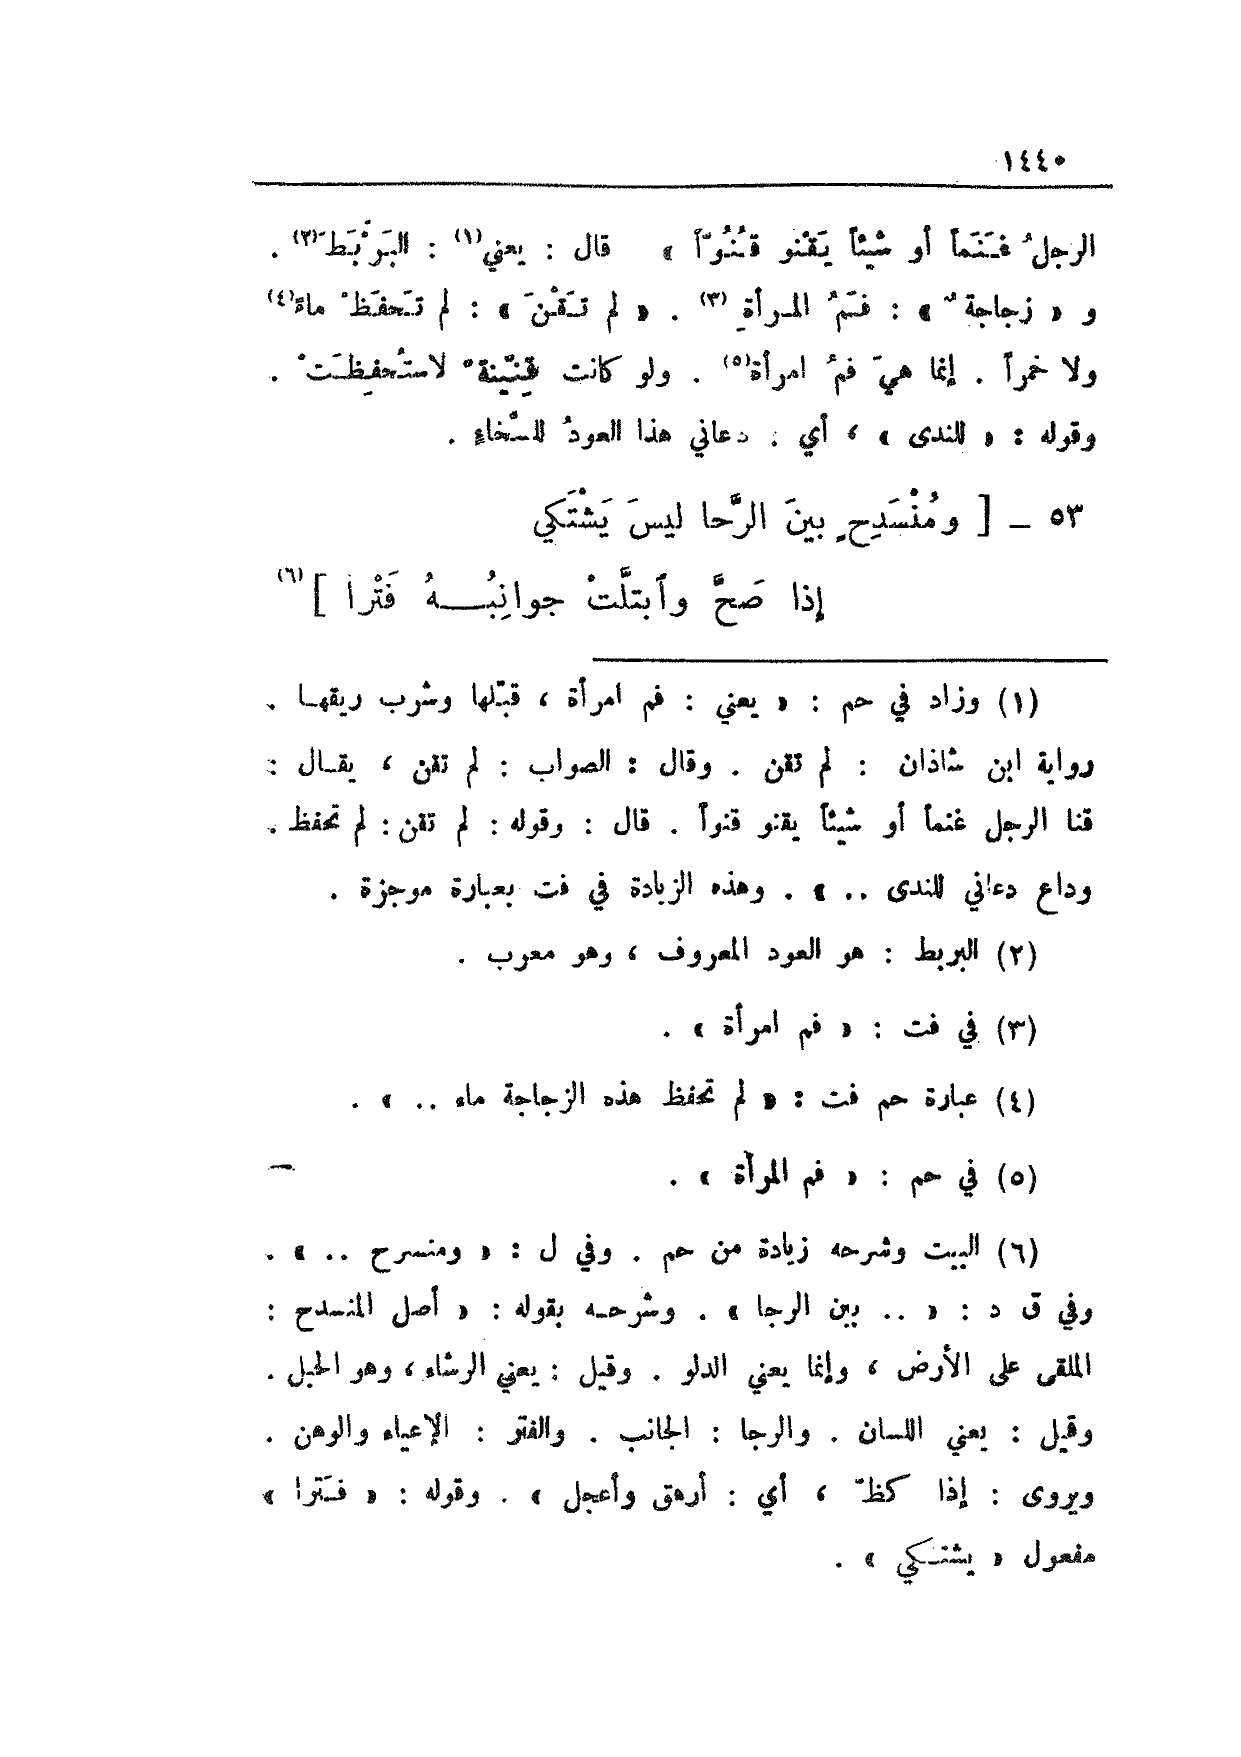 ١٤٤٠
الرجلُ غَنَماً أو شيئاً يَقْنو قُنُوّاً » قال : يعني(١) : البَرْبَطَ(٢) .
و « زجاجةٌ » : فَمُ المرأةِ (٣) . « لم تَقْنَ » : لم تَحفَظْ ماءً(٤)
ولا خمراً . إنما هيَ فمُ امرأة(٥) . ولو كانت قِنّينةً لاستُحفِظَتْ .
وقوله : « للندى » ، أي : دعاني هذا العودُ للسَّخاءِ .
٥٣ ــ [ ومُنْسَدِحٍ بينَ الرَّحا ليسَ يَشْتَكي
إذا صَحَّ وٱبتلَّتْ جوانِبُـــهُ فَتْرا ](٦)
(١) وزاد في حم : « يعني : فم امرأة ، قبّلها وشرب ريقهـا .
رواية ابن شاذان : لم تقن . وقال : الصواب : لم تقن ، يقـال :
قنا الرجل غنماً أو شيئاً يقنو قنواً . قال : وقوله : لم تقن : لم تحفظ .
وداع دعاني للندى .. » . وهذه الزيادة في فت بعبارة موجزة .
(٢) البربط : هو العود المعروف ، وهو معرب .
(٣) في فت : « فم امرأة » .
(٤) عبارة حم فت : « لم تحفظ هذه الزجاجة ماء .. » .
(٥) في حم : « فم المرأة » .
(٦) البيت وشرحه زيادة من حم . وفي ل : « ومنسرح .. » .
وفي ق د : « .. بين الرجا » . وشرحـه بقوله : « أصل المنسدح :
الملقى على الأرض ، وإنما يعني الدلو . وقيل : يعني الرشاء ، وهو الحبل .
وقيل : يعني اللسان . والرجا : الجانب . والفتر : الإعياء والوهن .
ويروى : إذا كظّ ، أي : أرهق وأعجل » . وقوله : « فَترا »
مفعول « يشتـكي » .